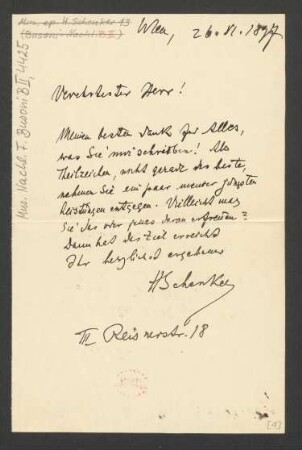 Mus. ep. H. Schenker 13
(Busoni-Nachl. B II)
Mus. Nachl. F. Busoni B II, 4425
Wien, 26. VI. 1897
Verehrtester Herr!
Meinen besten Dank für Alles,
was Sie mir schreiben! Als
nicht gerade das beste,
nehmen Sie ein paar meiner jüngsten
Leistungen entgegen. Vielleicht mag
Sie das oder jenes daran erfreuen?
Dann hat das Zeit erreicht
Ihr herzlichst ergebener
HSchenker
III Reisnerstr. 18